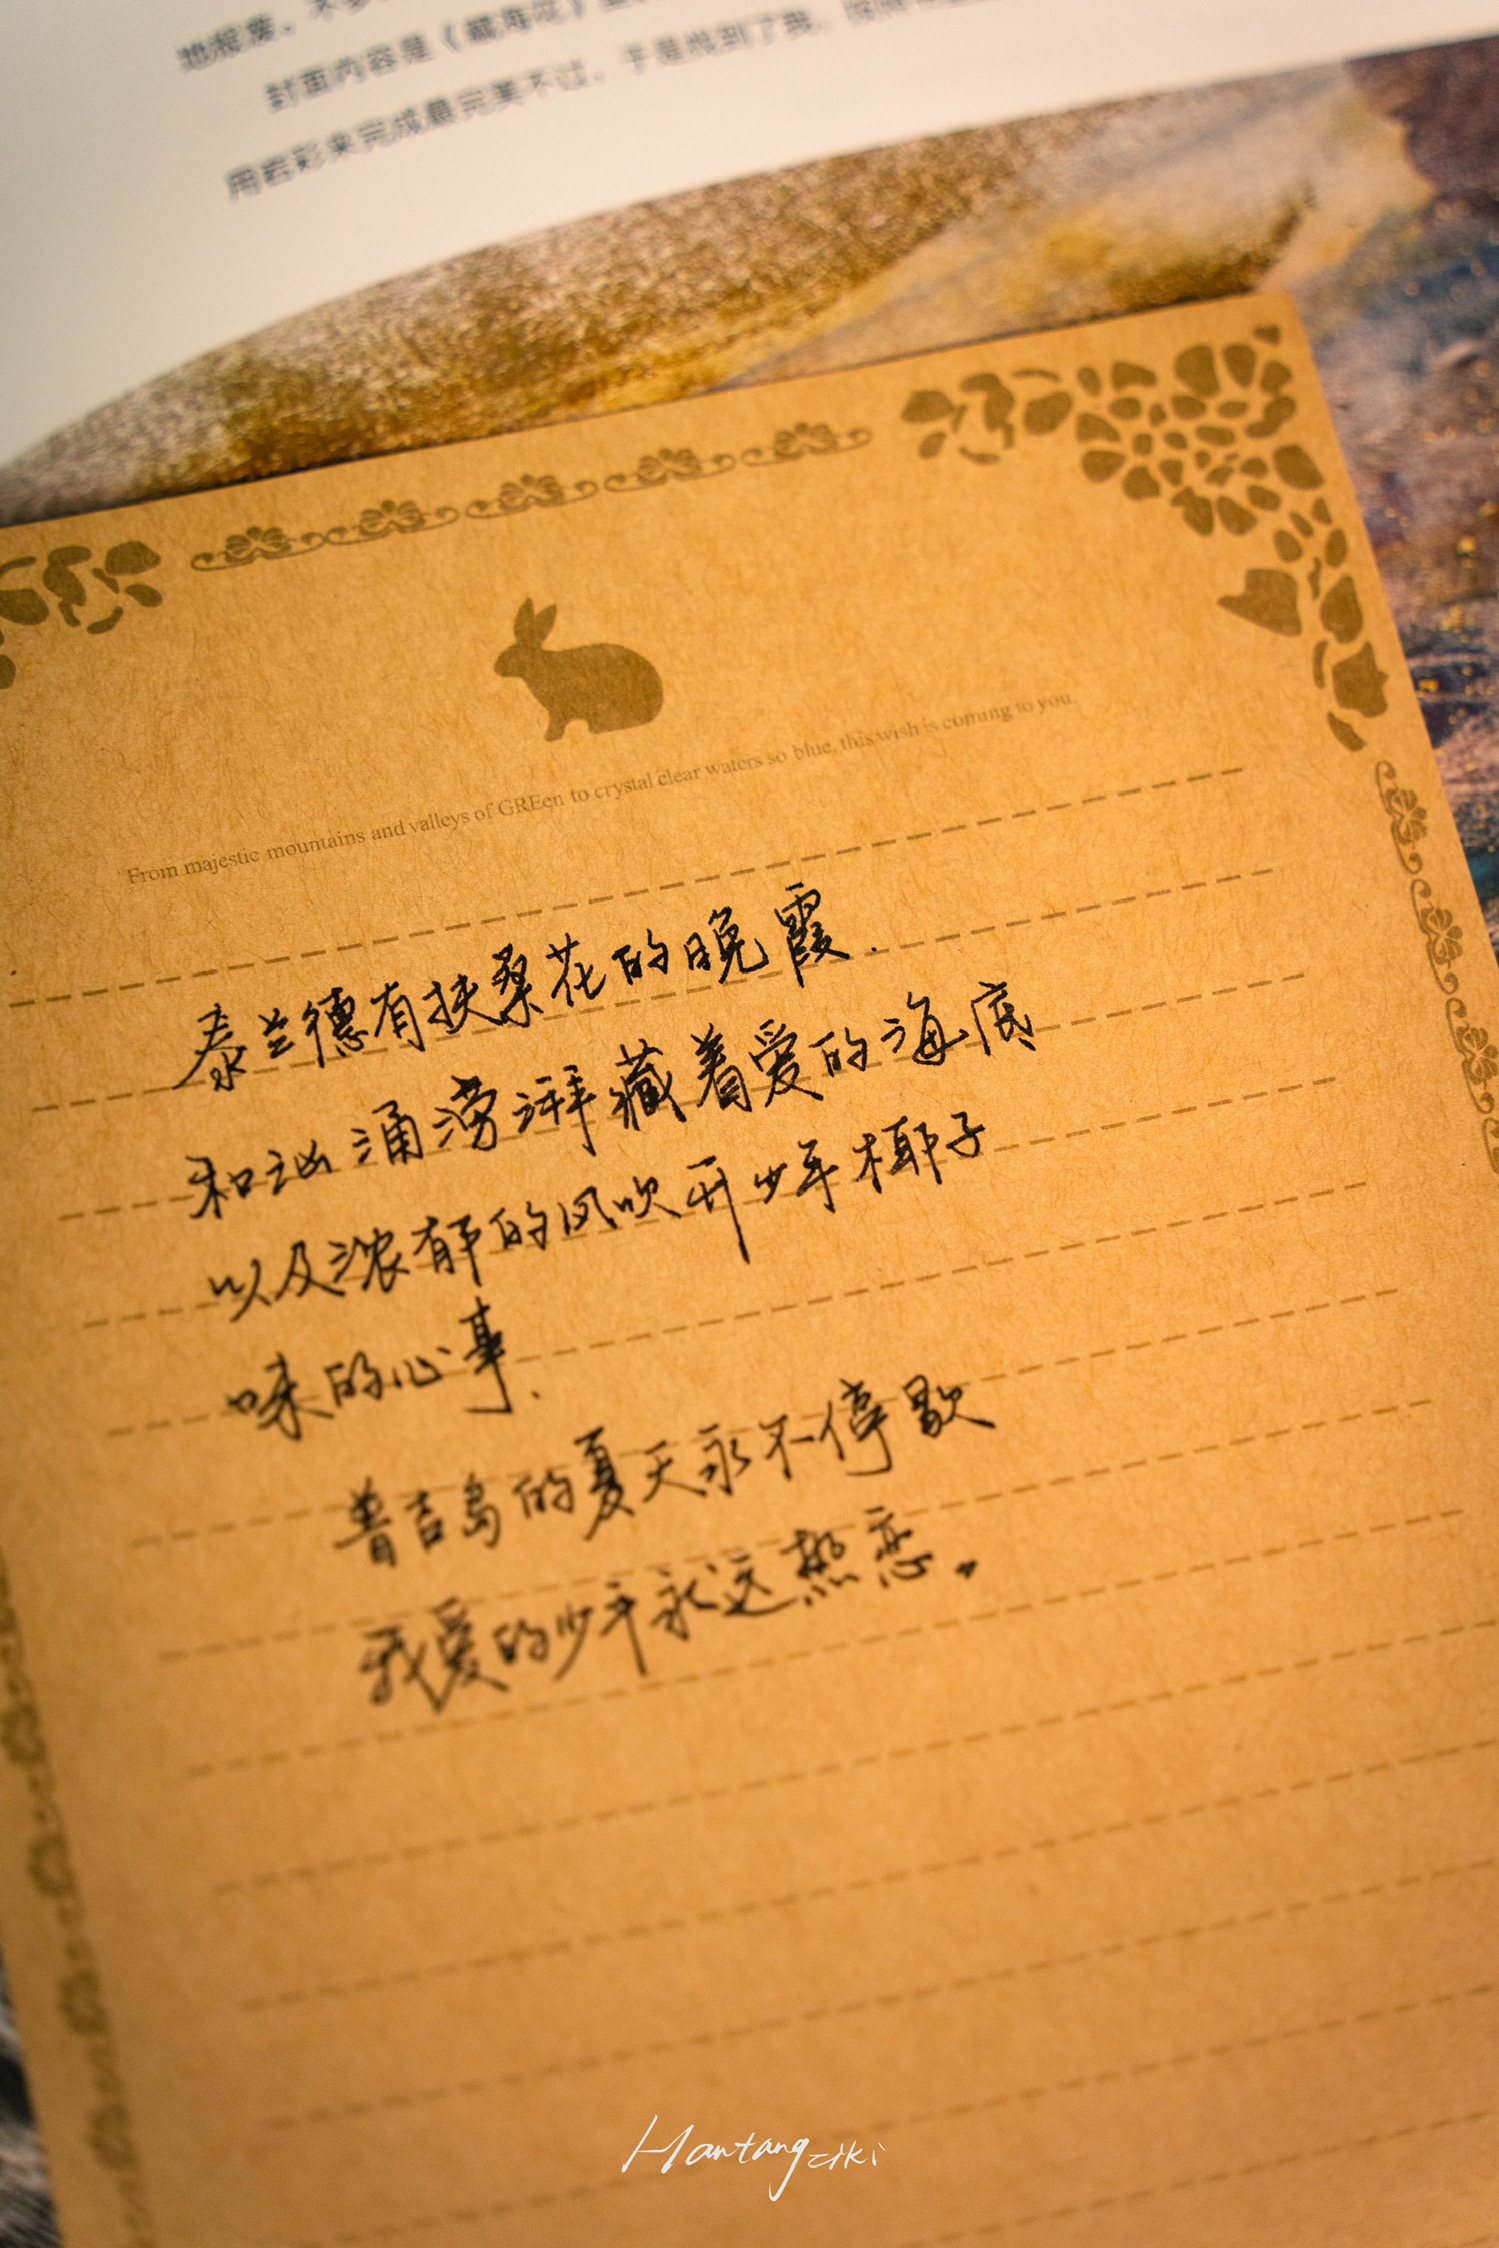 地报废，不
封面内容是《藏海花》
用岩彩来完成最完美不过，于是找到了我，
From majestic mountains and valleys of GREen to crystal clear waters so blue, this wish is coming to you.
泰兰德有扶桑花的晚霞.
和汹涌澎湃藏着爱的海底
以及浓郁的风吹开少年椰子
味的心事.
普吉岛的夏天永不停歇
我爱的少年永远热恋。
Hantangziki